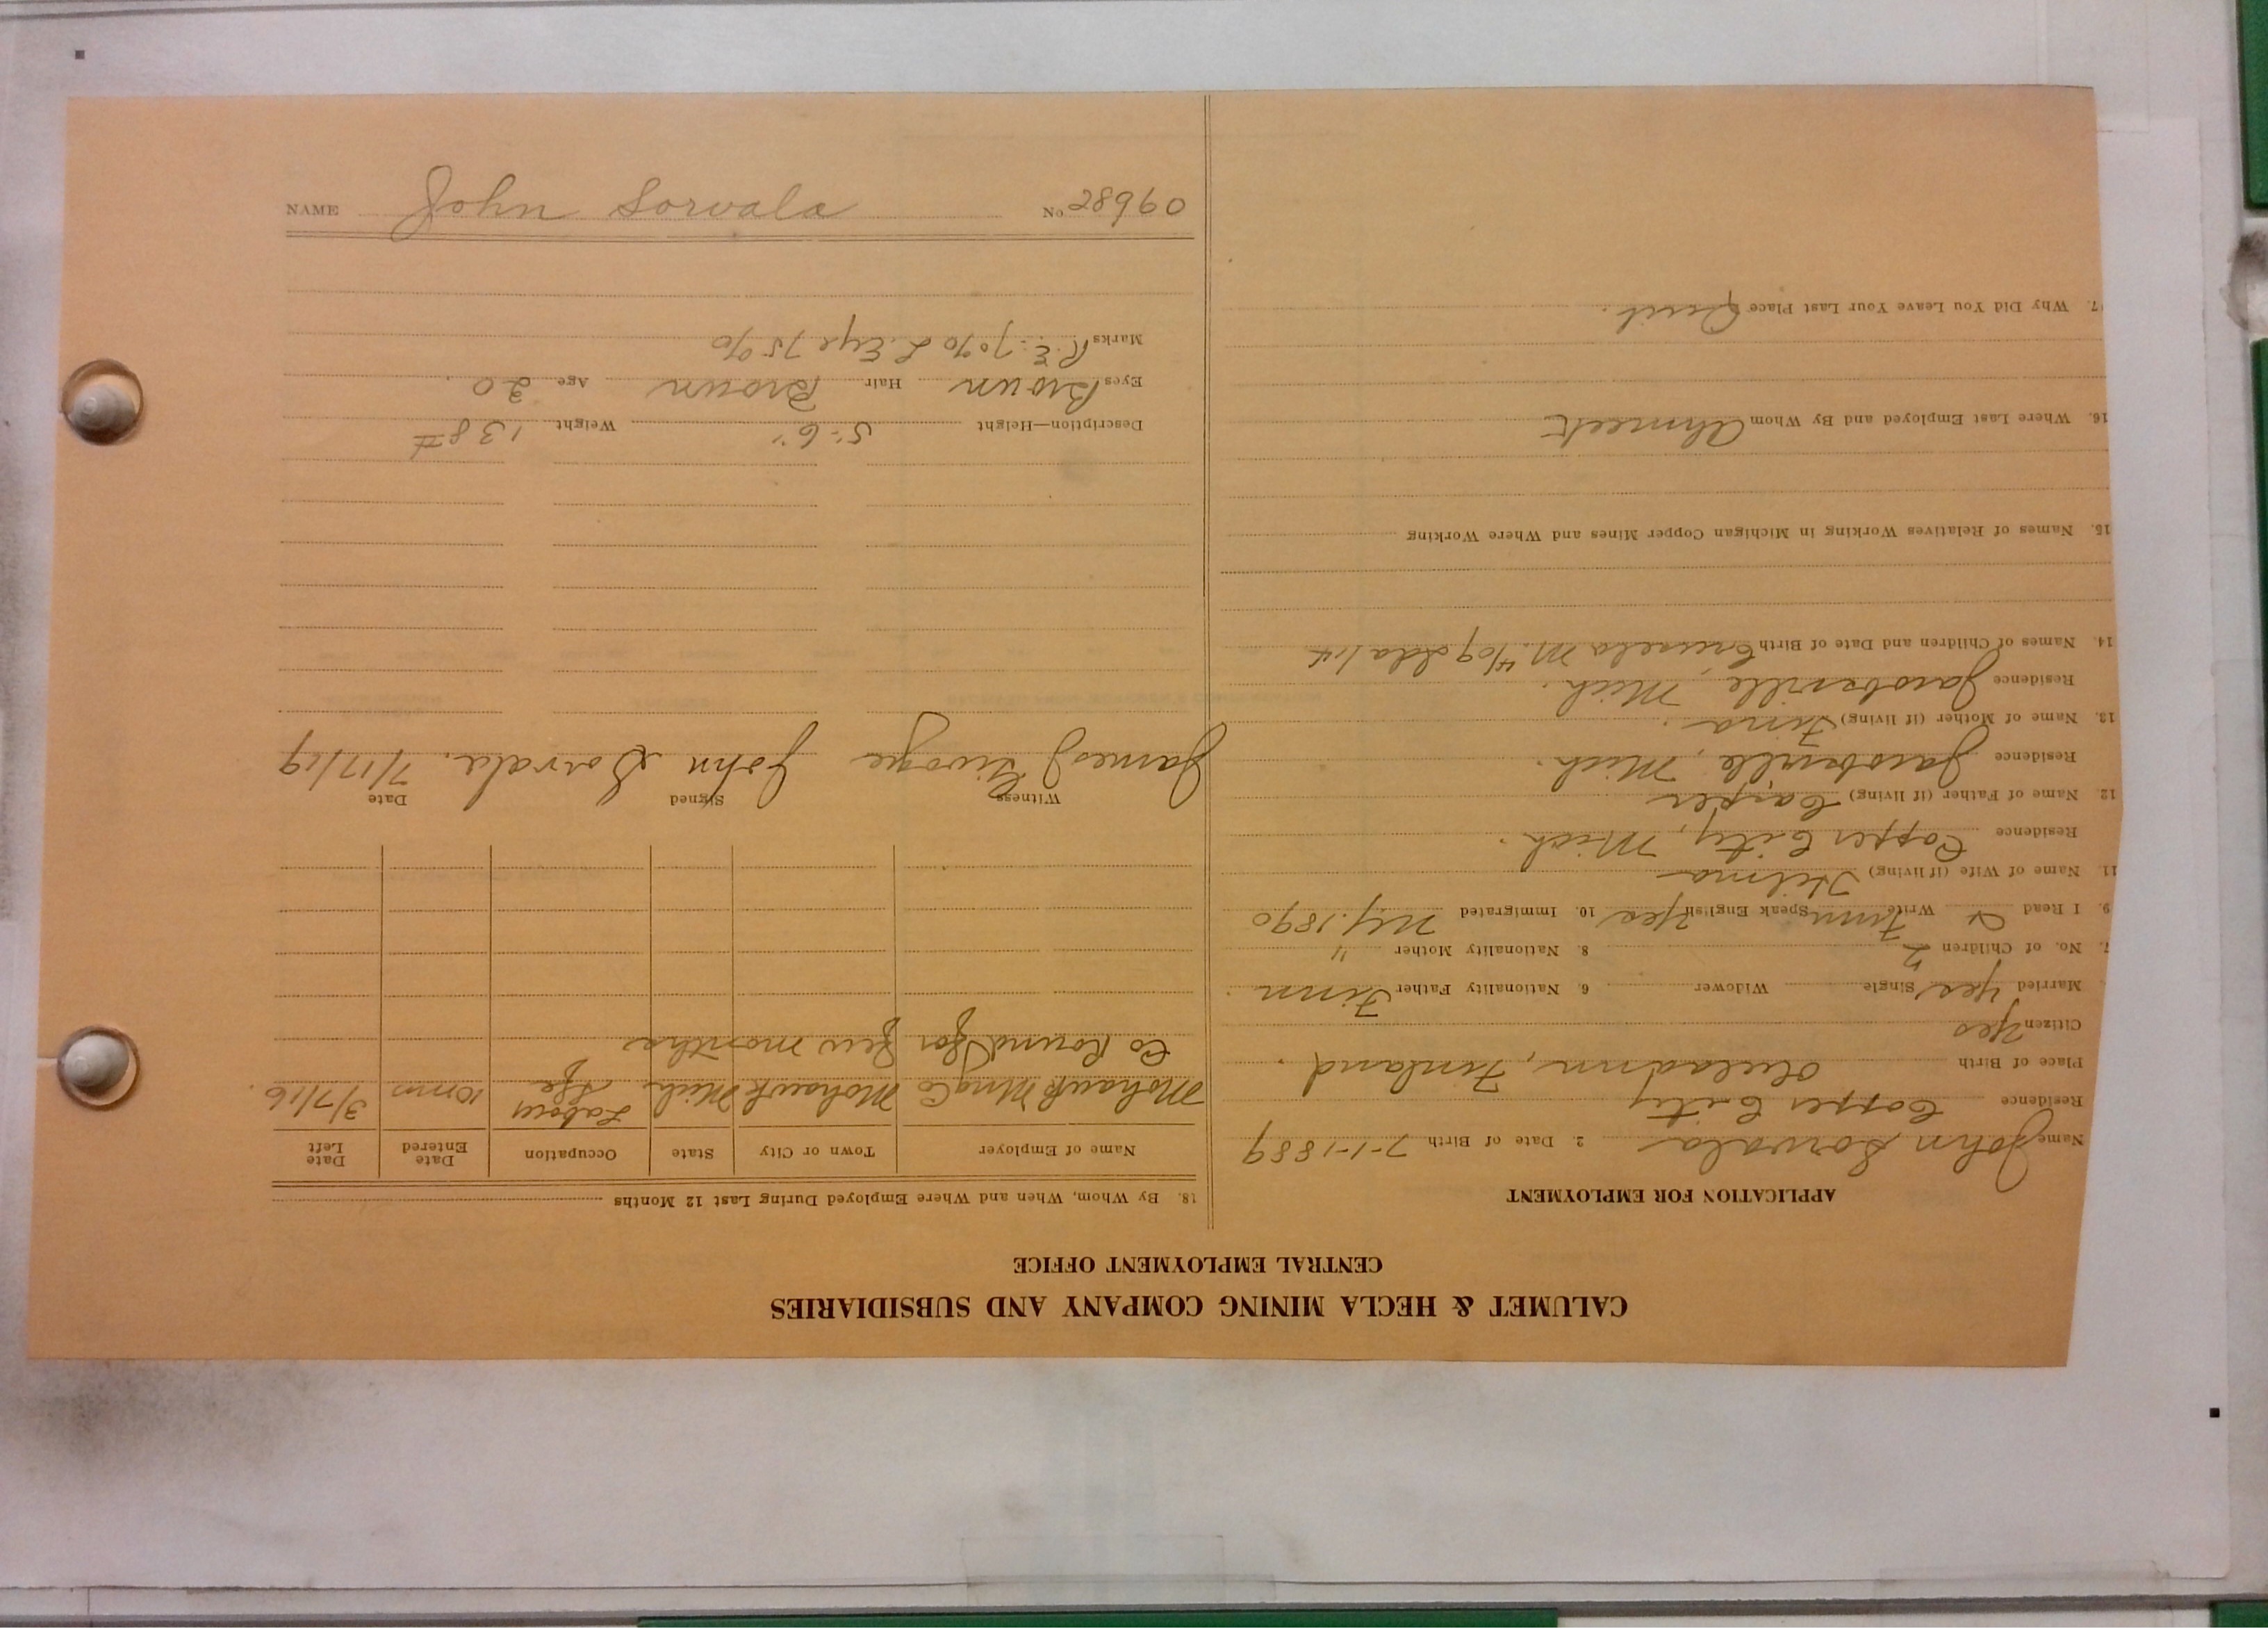 CALUMET & HECLA MINING COMPANY AND SUBSIDIARIES
CENTRAL EMPLOYMENT OFFICE
APPLICATION FOR EMPLOYMENT
Name John Sorvala 2. Date of Birth 7-1-1889
Residence Copper City
Place of Birth Finland.
Citizen Yes
Married Yes Single Widower 6. Nationality Father Finn
7. No. of Children 2 8. Nationality Mother "
9. I Read & Write Finn Speak English Yes 10. Immigrated 1890
11. Name of Wife (if living) Hilma
Residence Copper City, Mich.
12. Name of Father (if living) Casper
Residence Jacobsville, Mich.
13. Name of Mother (if living) Fina.
Residence Jacobsville, Mich.
14. Names of Children and Date of Birth
15. Names of Relatives Working in Michigan Copper Mines and Where Working
16. Where Last Employed and By Whom Ahmeek
17. Why Did You Leave Your Last Place Quit.
18. By Whom, When and Where Employed During Last 12 Months
Name of Employer Town or City State Occupation Date Entered Date Left
Mohawk Mng Co Mohawk Mich Labour 3/7/16
Co Round for few months
Witness Signed Date
James John Sorvala. 7/17/19
Description—Height 5'-6" Weight 138#
Eyes Brown Hair Brown Age 20.
Marks R.E. 70% L. Eye 75%
NAME John Sorvala No 28960